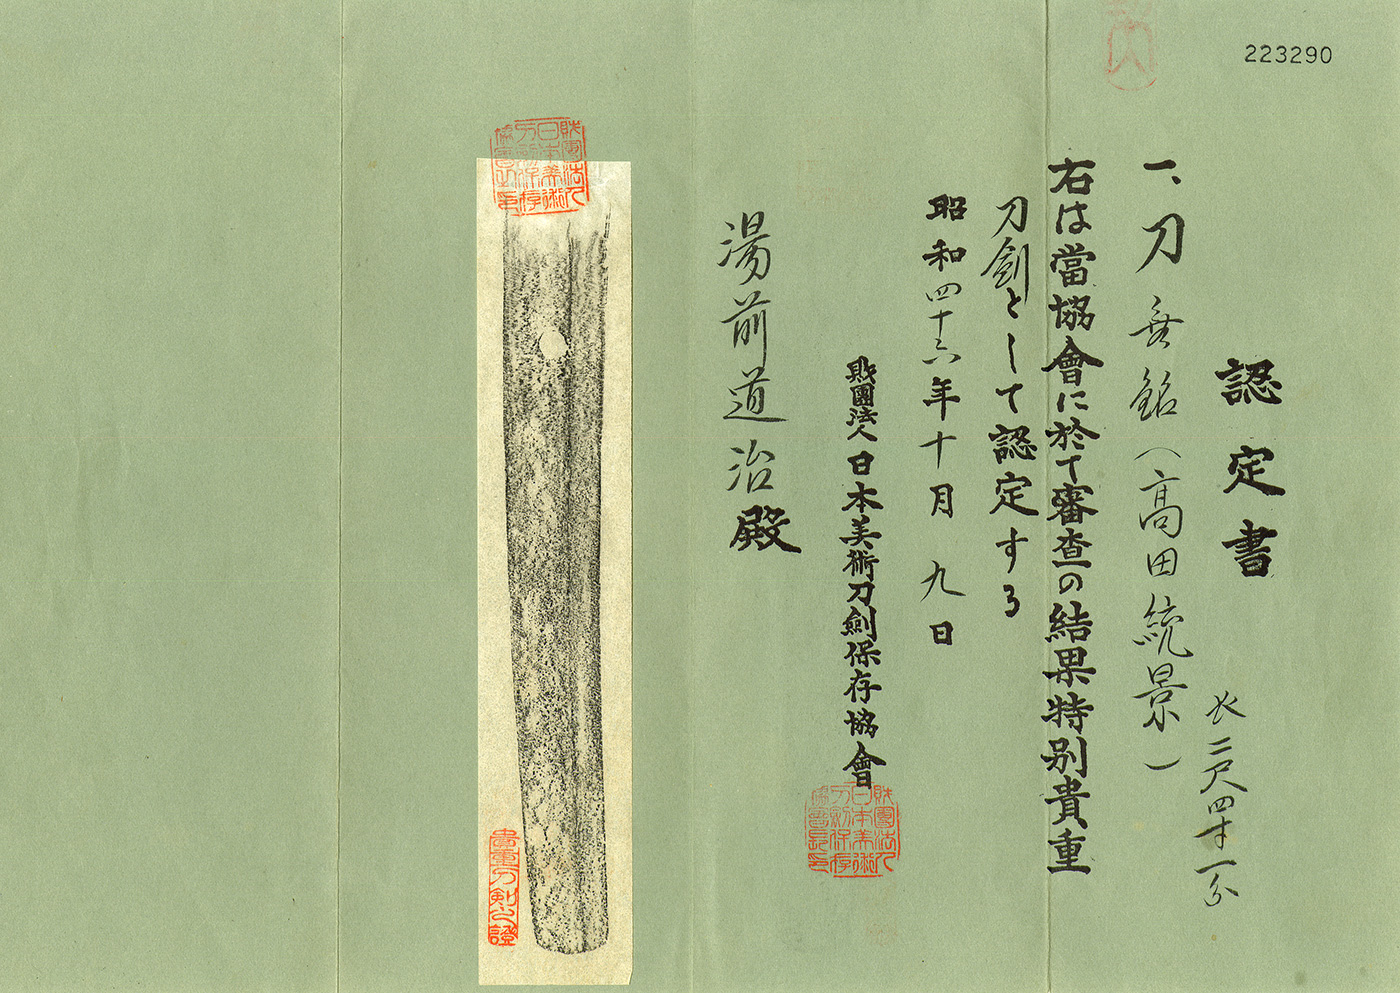 223290
認定書
長二尺四寸一分
一、刀 無銘(高田統景)
右は當協會に於て審査の結果特別貴重
刀剣として認定する
昭和四十六年十月九日
財團法人日本美術刀劍保存協會
湯前道治殿
財團法人日本美術刀剣保存協會長印
財團法人日本美術刀剣保存協會長印
貴重刀剣之證